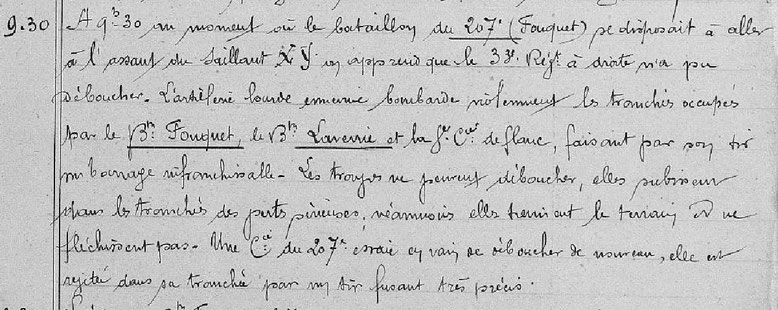 9.30 A 9h30 au moment où le bataillon du 207e (Fouquet) se disposait à aller
à l'assaut du saillant X Y on apprend que le 33e Regt à droite n'a pu
déboucher. L'artillerie lourde ennemie bombarde violemment les tranchées occupées
par le Bon Fouquet, le Bon Lavernie et la Cie de flanc, faisant par son tir
un barrage infranchissable. Les troupes ne peuvent déboucher, elles subissent
dans les tranchées des pertes sérieuses, néanmoins elles tiennent le terrain et ne
fléchissent pas. Une Cie du 207e essaie en vain de déboucher de nouveau, elle est
rejetée dans sa tranchée par un tir fusant très précis.